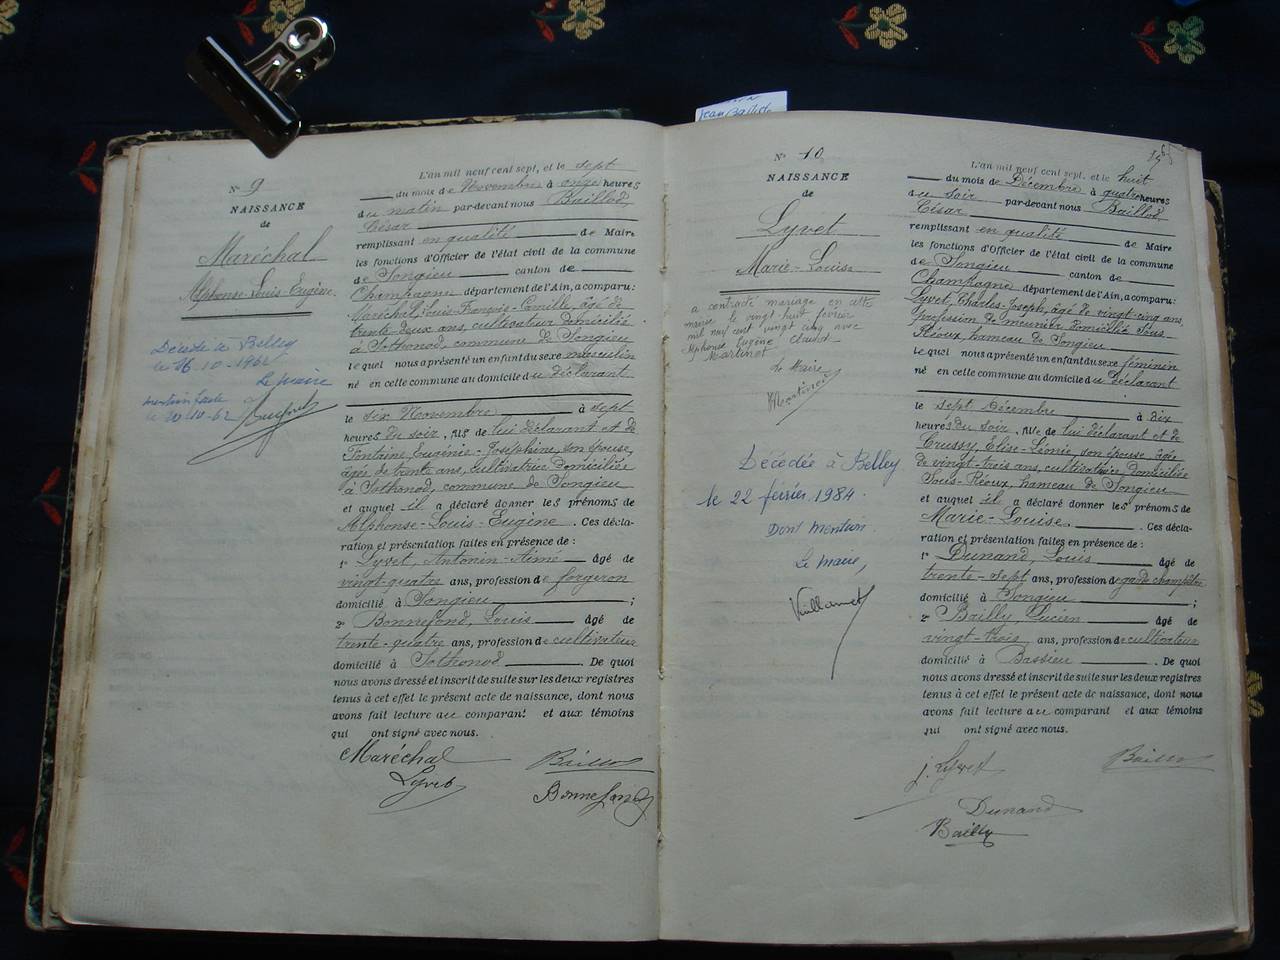 Jean Baptiste
N° 9
NAISSANCE
de
Maréchal
Alphonse-Louis-Eugène.
Décédé à Belley
le 16-10-1962
Le Maire
mention faite
le 20-10-62
L'an mil neuf cent sept, et le sept
du mois de Novembre à onze heures
du matin par-devant nous Baillod,
César
remplissant en qualité de Maire
les fonctions d'Officier de l'état civil de la commune
de Songieu canton de
Champagne département de l'Ain, a comparu:
Maréchal, Louis-François-Camille, âgé de
trente-deux ans, cultivateur domicilié
à Sothonod, commune de Songieu
lequel nous a présenté un enfant du sexe masculin
né en cette commune au domicile du déclarant
le six Novembre à sept
heures du soir, fils de lui déclarant et de
Fontaine, Eugénie-Joséphine, son épouse,
âgée de trente ans, cultivatrice domiciliée
à Sothonod, commune de Songieu
et auquel il a déclaré donner les prénoms de
Alphonse-Louis-Eugène. Ces décla-
ration et présentation faites en présence de :
1° Lyvet, Antonin-Aimé âgé de
vingt-quatre ans, profession de forgeron
domicilié à Songieu ;
2° Bonnefond, Louis âgé de
trente-quatre ans, profession de cultivateur
domicilié à Sothonod. De quoi
nous avons dressé et inscrit de suite sur les deux registres
tenus à cet effet le présent acte de naissance, dont nous
avons fait lecture au comparant et aux témoins
qui ont signé avec nous.
Maréchal Baillod
Lyvet Bonnefond
N° 10
NAISSANCE
de
Lyvet
Marie-Louise
a contracté mariage en cette
mairie le vingt huit février
mil neuf cent vingt cinq avec
Alphonse Eugène Claude
Martinet
Le Maire
Décédée à Belley
le 22 février 1984.
Dont mention
Le Maire,
L'an mil neuf cent sept, et le huit
du mois de Décembre à quatre heures
du soir par-devant nous Baillod,
César
remplissant en qualité de Maire
les fonctions d'Officier de l'état civil de la commune
de Songieu canton de
Champagne département de l'Ain, a comparu:
Lyvet, Charles-Joseph, âgé de vingt-cinq ans
profession de meunier domicilié Sous-
Réoux, hameau de Songieu
lequel nous a présenté un enfant du sexe féminin
né en cette commune au domicile du déclarant
le sept Décembre à dix
heures du soir, fille de lui déclarant et de
Crussy, Elise-Léonie, son épouse, âgée
de vingt-trois ans, cultivatrice domiciliée
Sous-Réoux, hameau de Songieu
et auquel il a déclaré donner les prénoms de
Marie-Louise. Ces décla-
ration et présentation faites en présence de :
1° Dunand, Louis âgé de
trente-sept ans, profession de garde champêtre
domicilié à Songieu ;
2° Bailly, Lucien âgé de
vingt-trois ans, profession de cultivateur
domicilié à Bassieu. De quoi
nous avons dressé et inscrit de suite sur les deux registres
tenus à cet effet le présent acte de naissance, dont nous
avons fait lecture au comparant et aux témoins
qui ont signé avec nous.
j. Lyvet Baillod
Dunand
Bailly